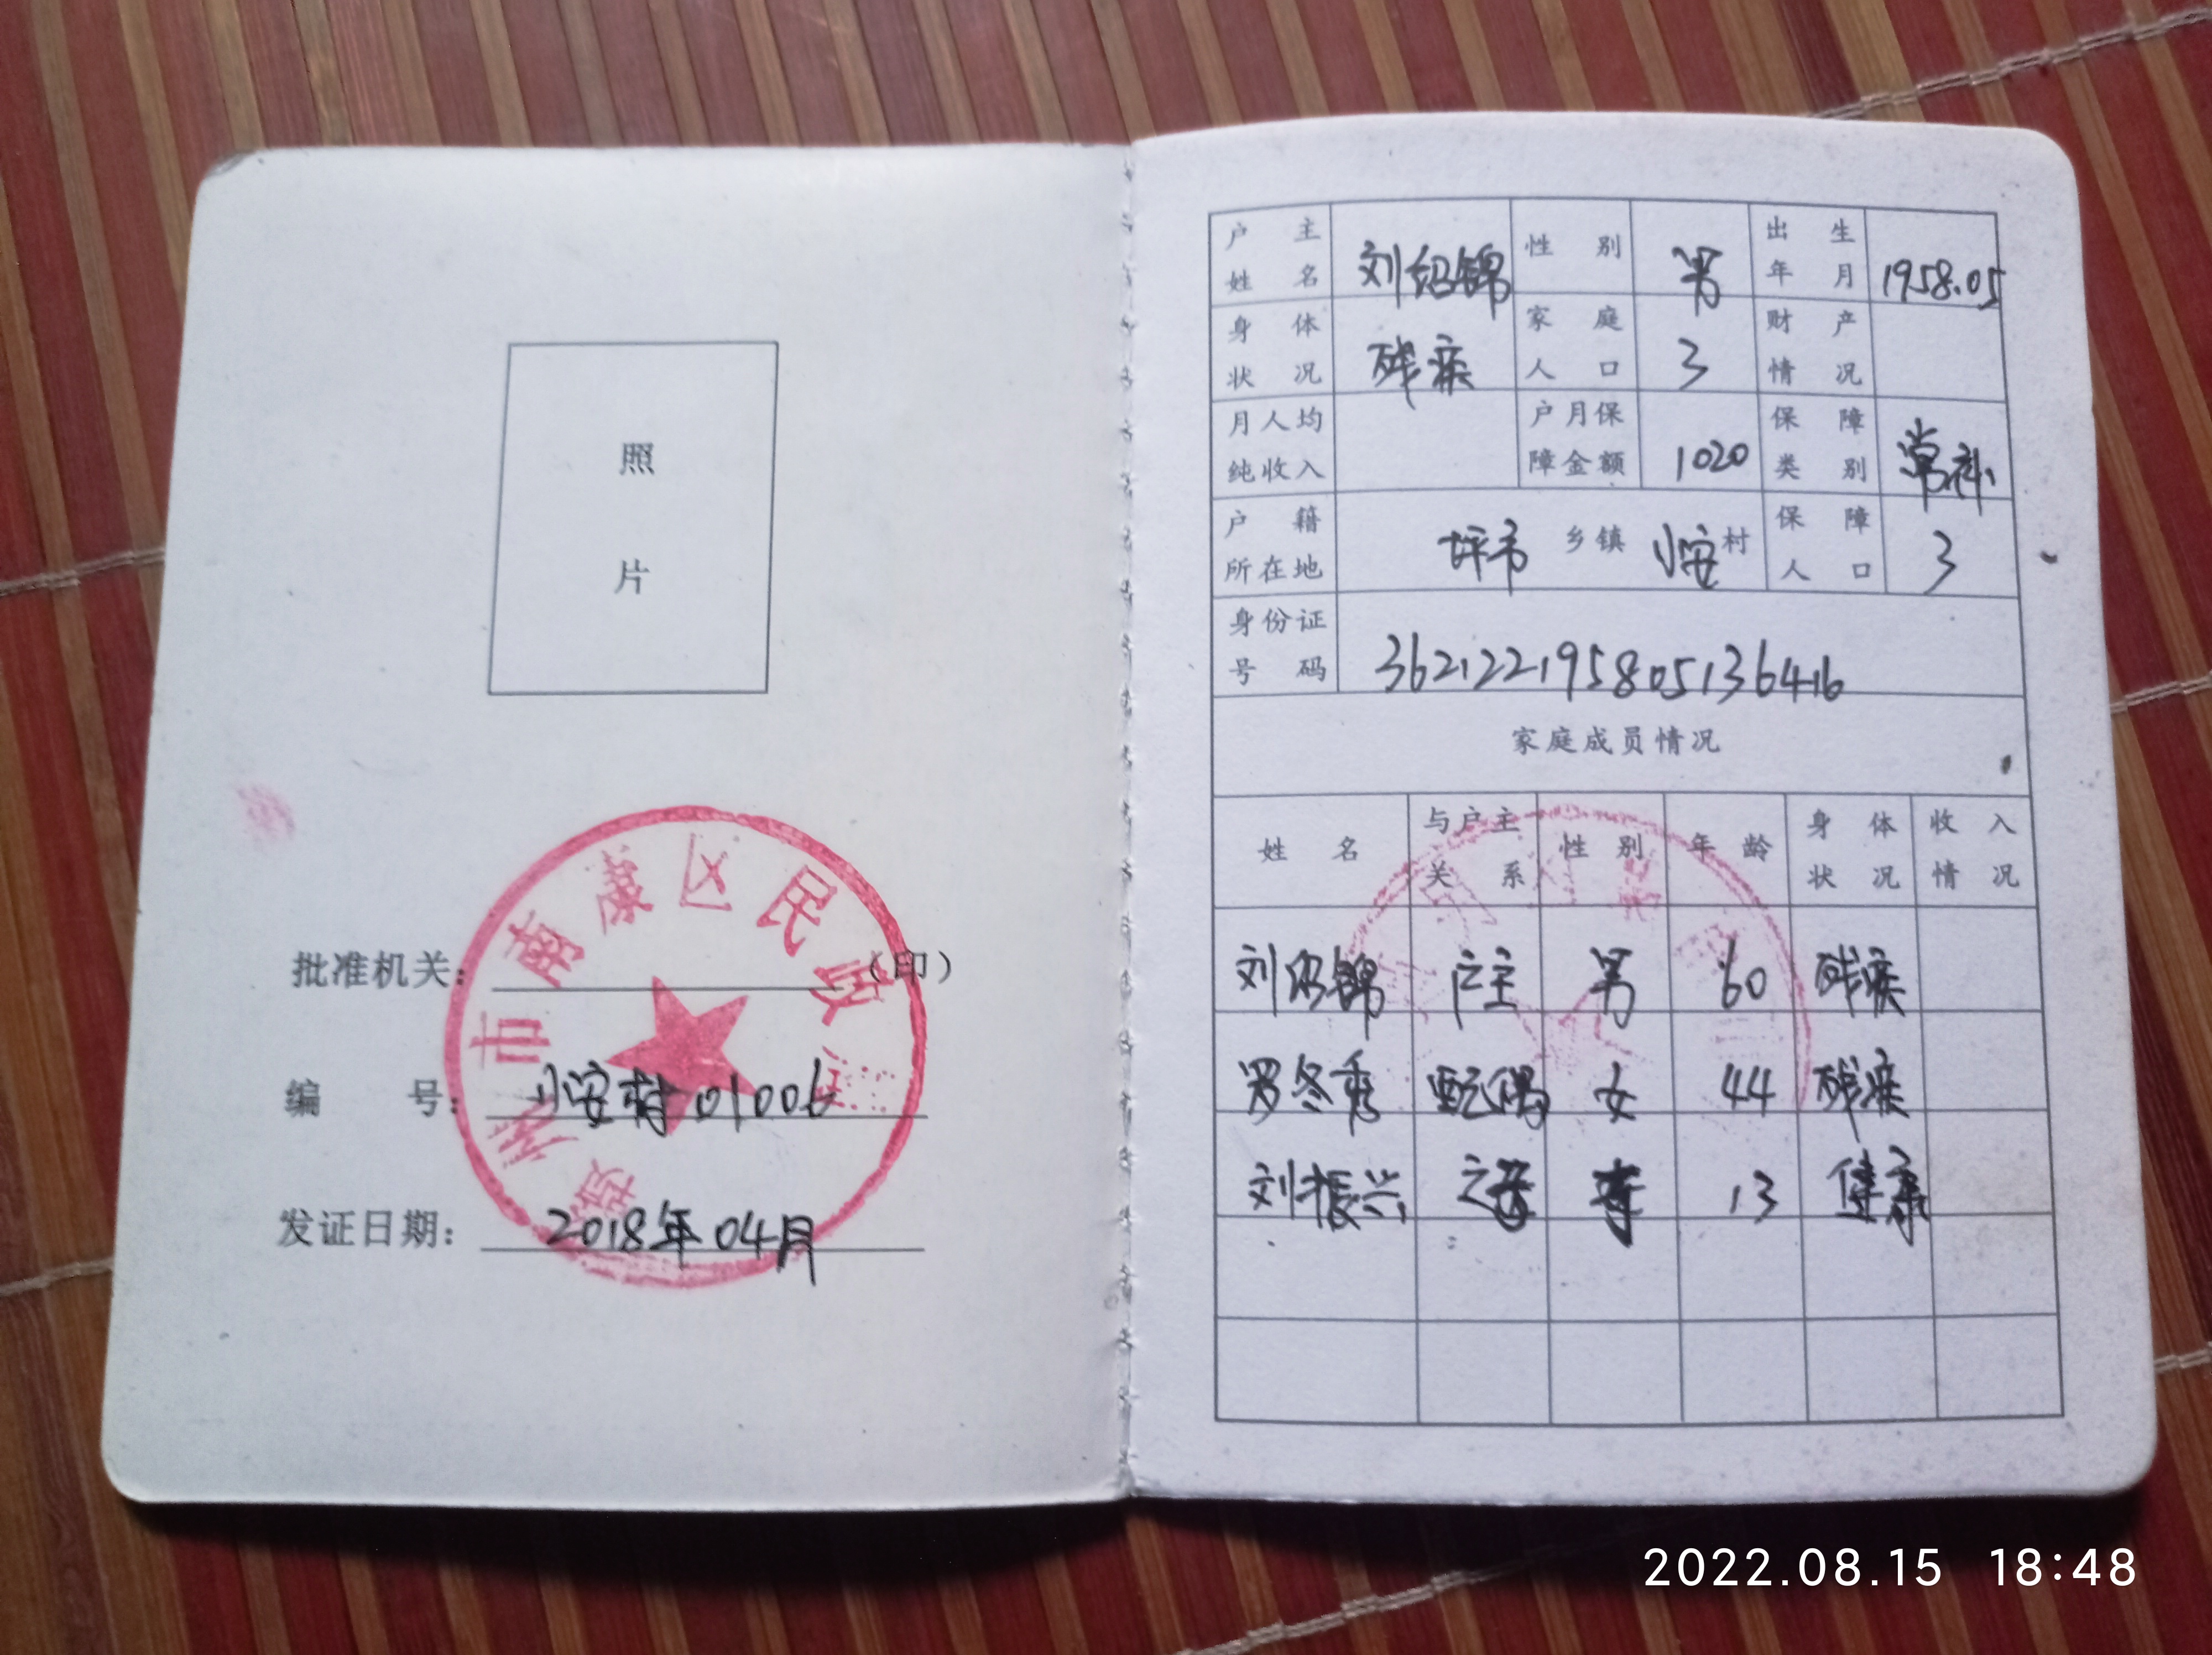 照
片
赣州市南康区民政局
批准机关：（印）
编 号：小安村01006
发证日期：2018年04月
户主姓名 刘绍锦 性别 男 出生年月 1958.05
身体状况 残疾 家庭人口 3 财产情况
月人均纯收入 户月保障金额 1020 保障类别 常补
户籍所在地 坪市 乡镇 小安 村 保障人口 3
身份证号码 362122195805136416
家庭成员情况
姓名 与户主关系 性别 年龄 身体状况 收入情况
刘绍锦 户主 男 60 残疾
罗冬秀 配偶 女 44 残疾
刘振兴 13 健康
2022.08.15 18:48